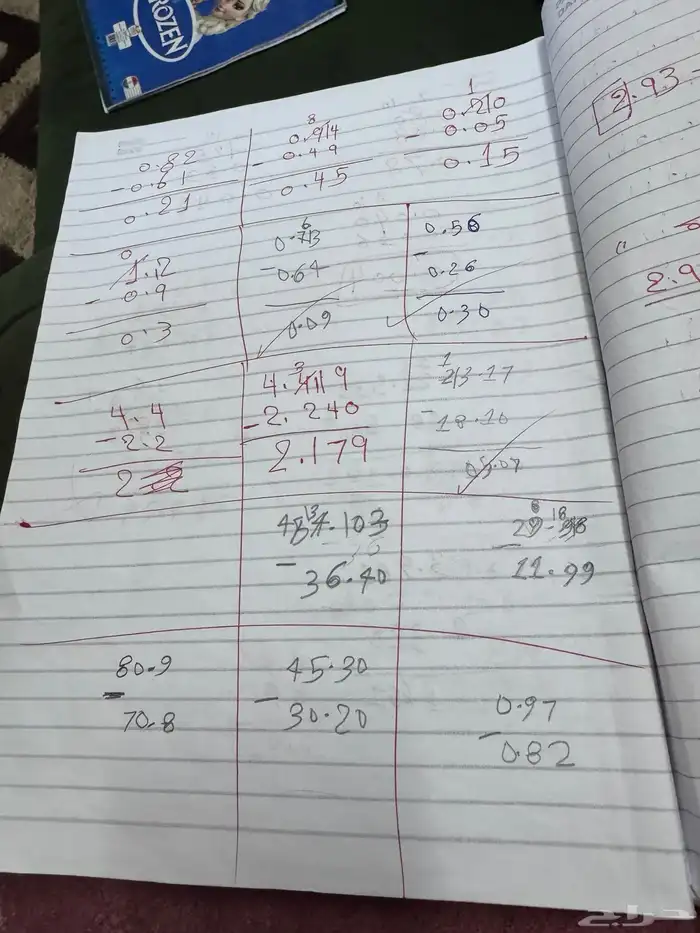 FROZEN
0.82
- 0.61
0.21
8
0.914
- 0.49
0.45
1
0.210
- 0.05
0.15
2.93 -
0
1.12
- 0.9
0.3
6
0.713
- 0.64
0.09
0.56
-
0.26
0.30
2.9
4.4
- 2.2
2
3
4.4119
- 2.240
2.179
1
213.17
- 18.10
05.07
-
36.40
8 18
-
11.99
80.9
-
70.8
45.30
-
30.20
0.97
-
0.82
حراج